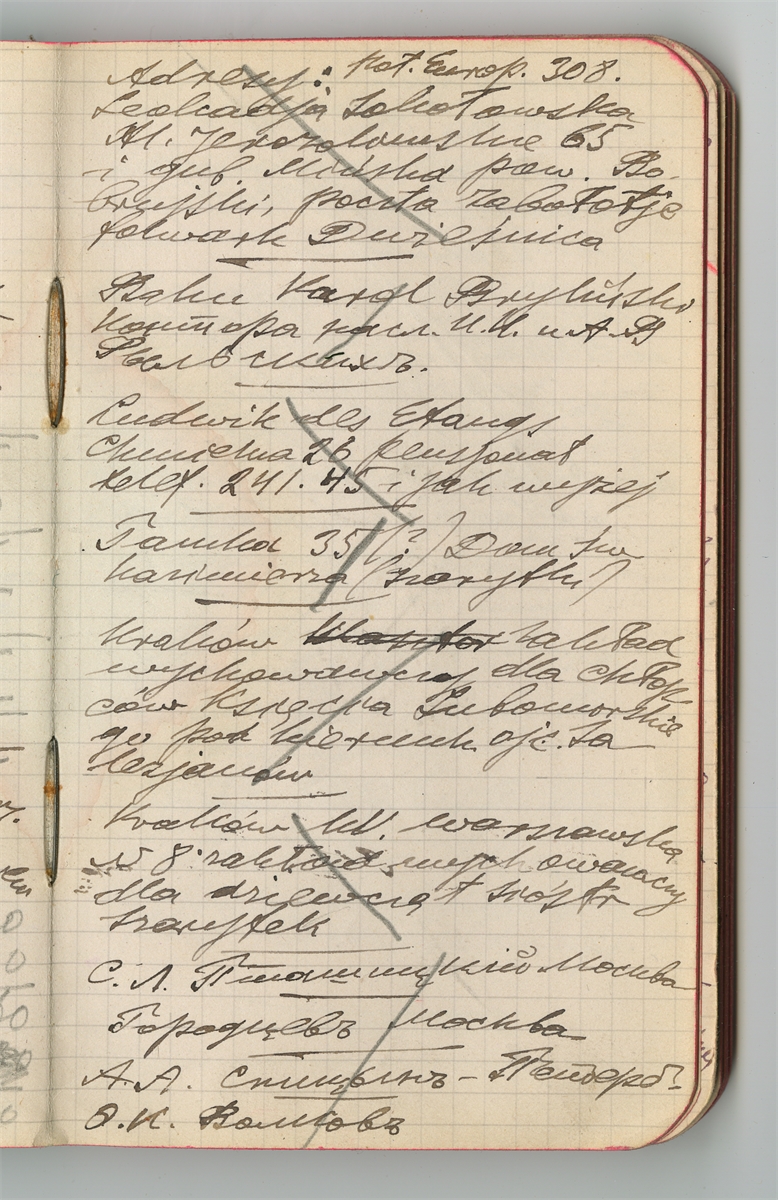 Adresy: Hot. Europ. 308.
Leokadja Sokołowska
Al. Jerozolimskie 65
i gub. Mińska pow. Bo-
brujski, poczta Zabołotje
folwark Dwiesnica
Baku Karol Bryliński
Контора насл. И.И. и А.В
Рыльскихъ.
Ludwik des Etangs
Chmielna 26 pensjonat
telef. 241.45 i jak wyżej
Tamka 35 (?) Dom św
Kazimierza (szarytki)
Kraków zakład
wychowawczy dla chłop-
ców Księcia Lubomirskie
go pod kierunk. ojc. Sa
lezjanów
Kraków Ul. Warszawska
№ 8 zakład wychowawczy
dla dziewcząt sióstr
szarytek
С. Л. Пташицкій Москва
Городцевъ Москва
А.А. Спицынъ - Петерб.
Ѳ.К. Волковъ